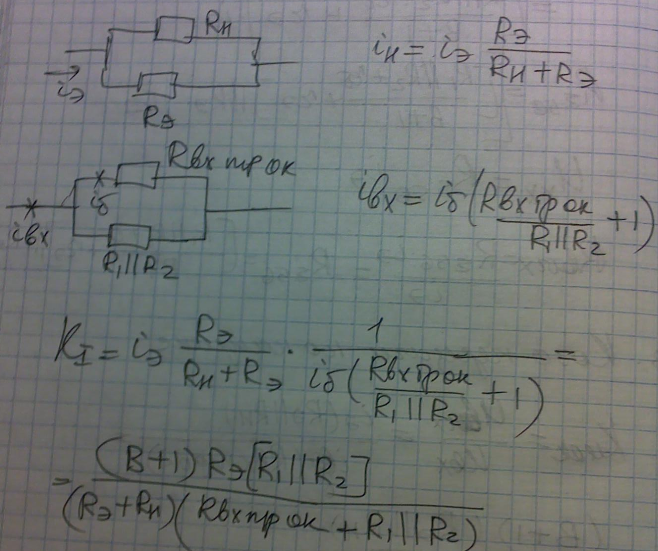 Rн
iн = iэ Rэ / (Rн + Rэ)
iэ
Rэ
Rвх трок
iб
iвх
iвх = iб (Rвхтрок / R₁||R₂ + 1)
R₁||R₂
KI = iэ Rэ / (Rн + Rэ) · 1 / (iб (Rвхтрок / R₁||R₂ + 1)) =
= (B+1) Rэ [R₁||R₂] / ((Rэ+Rн)(Rвхтрок + R₁||R₂))